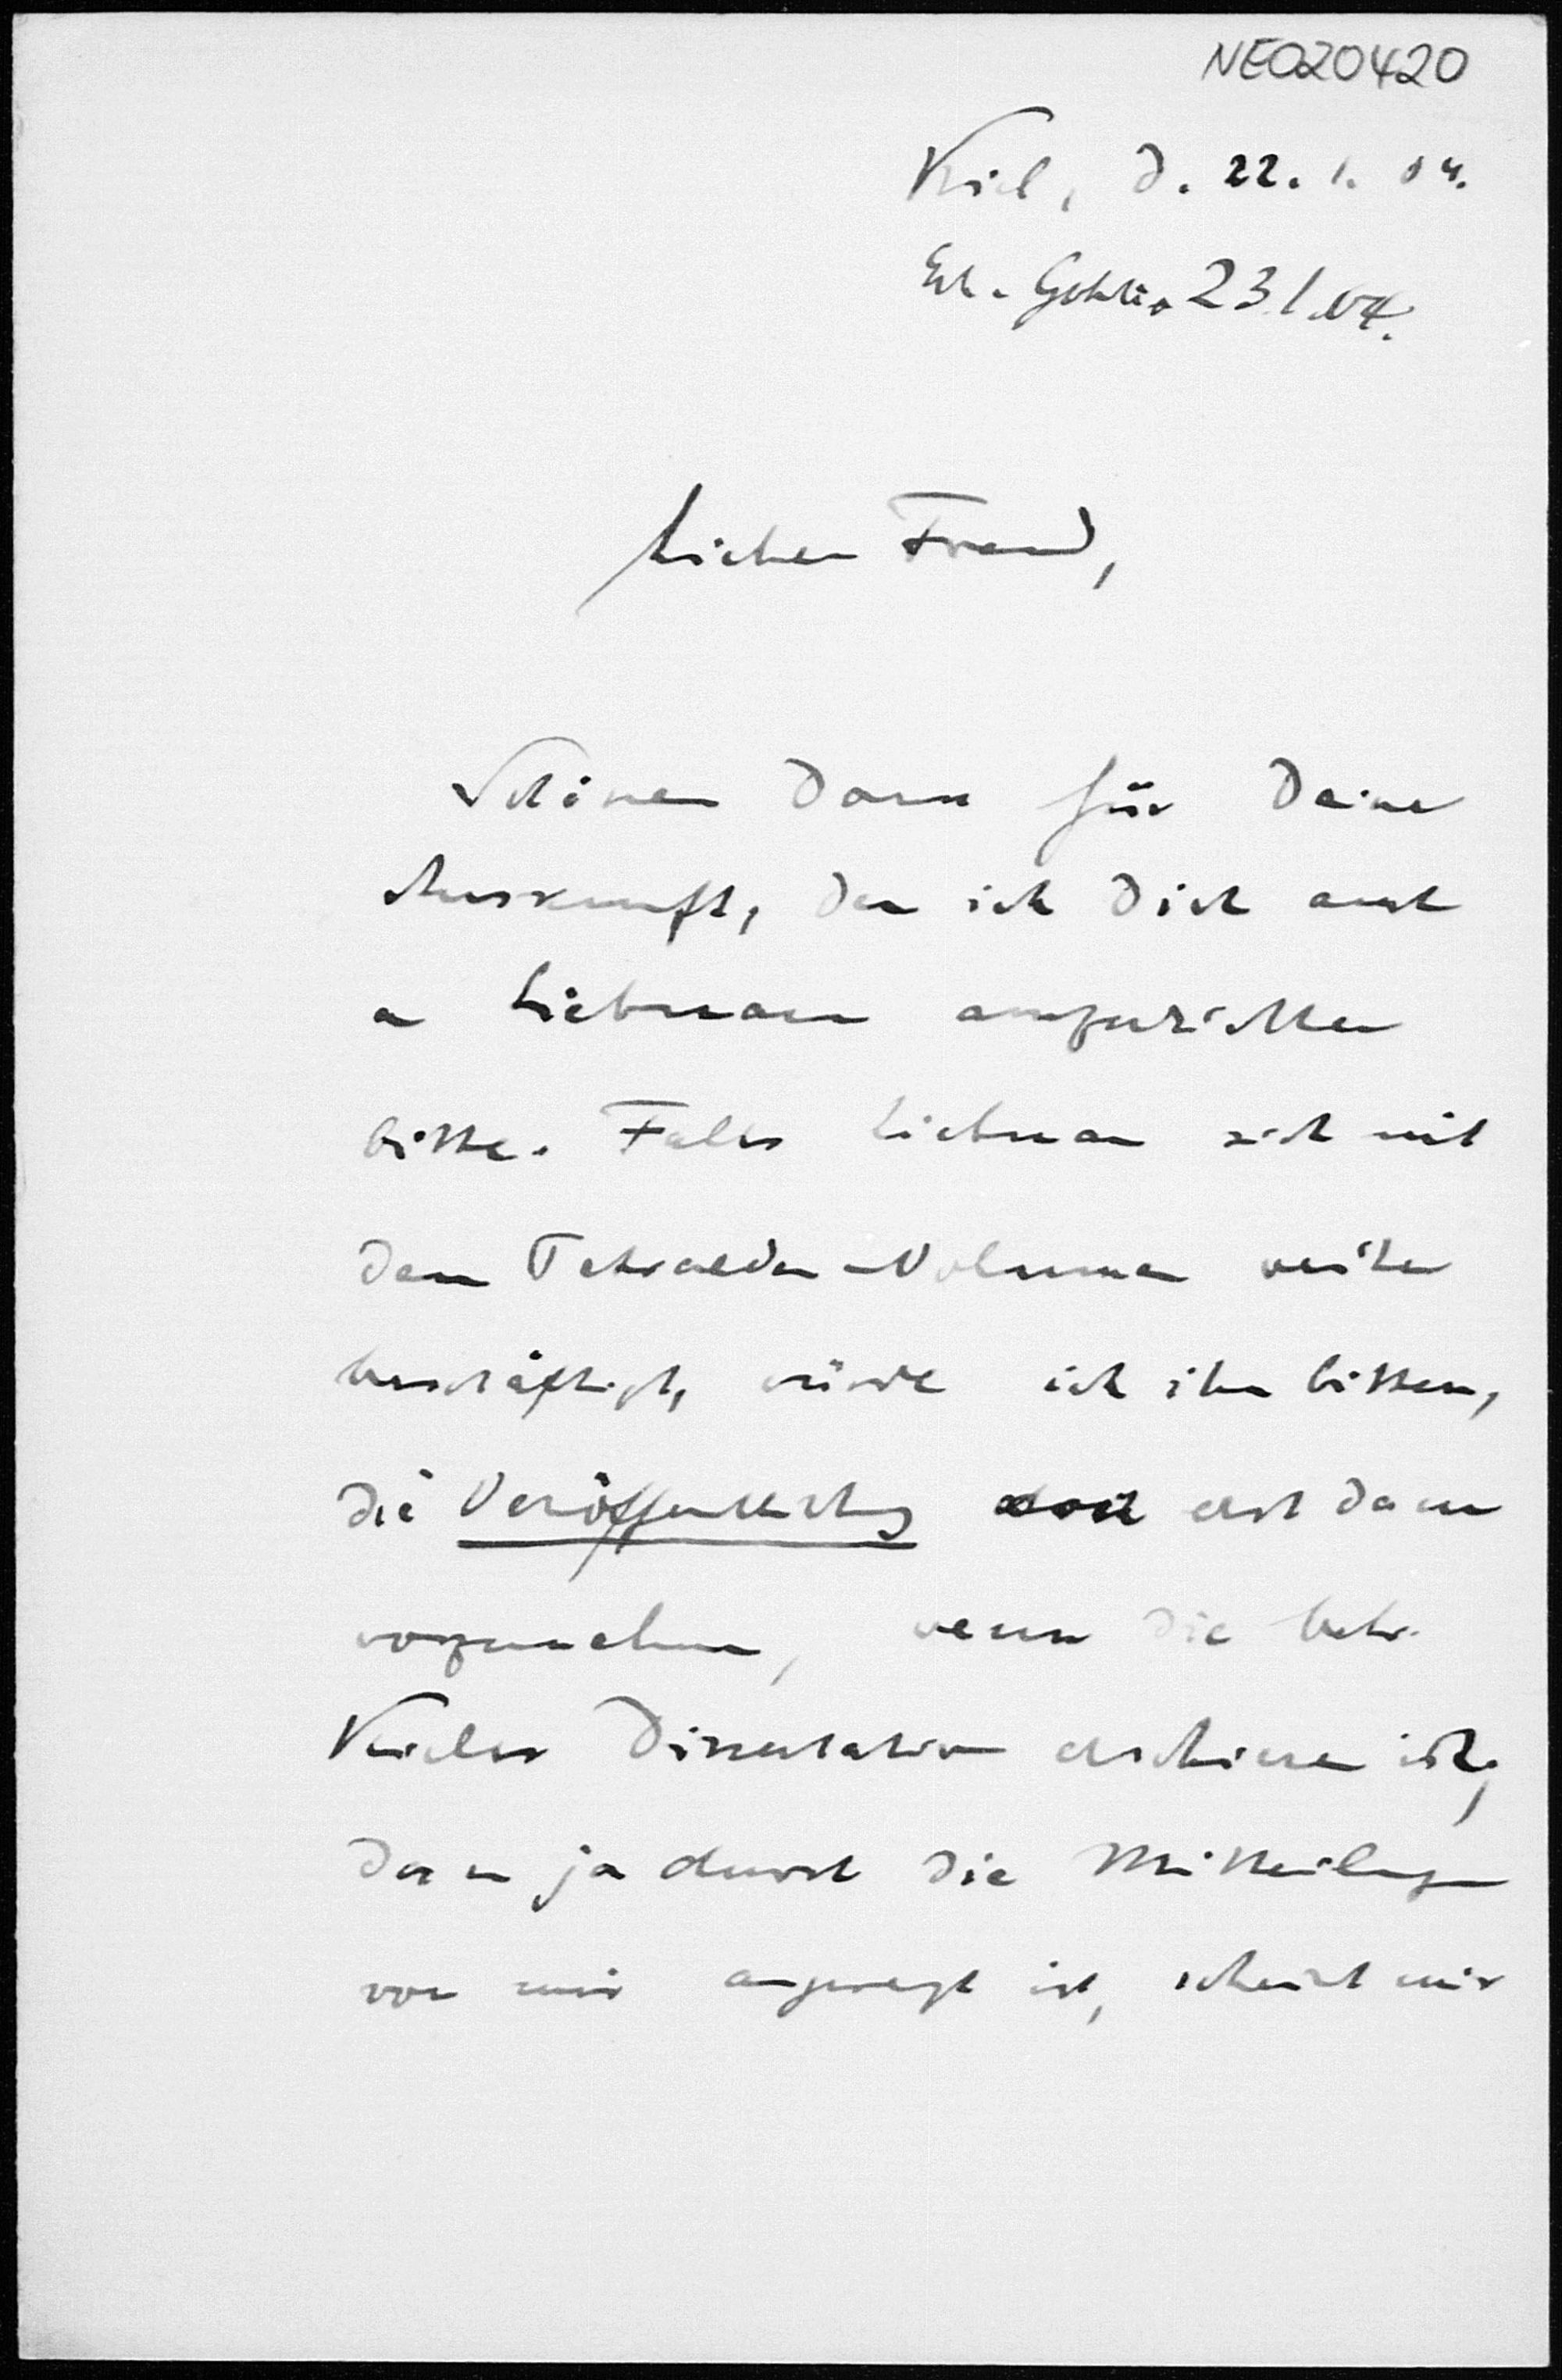 NE020420
Kiel, d. 22. 1. 04.
Erh. Gohlis 23.1.04.
Lieber Freund,
Schönen Dank für Deine
Auskunft, den ich Dich auch
an Liebmann auszurichten
bitte. Falls Liebmann sich mit
dem Tetraeder-Volumen weiter
beschäftigt, würde ich ihn bitten,
die Veröffentlichung erst dann
vorzunehmen, wenn die betr.
Kieler Dissertation erschienen ist,
dann ja durch die Mitteilungen
von mir angeregt ist, scheint mir